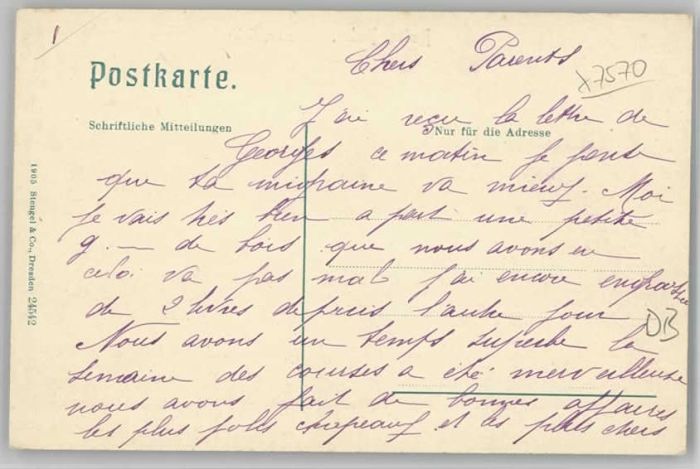 1
Postkarte.
Schriftliche Mitteilungen
Nur für die Adresse
1905 Stengel & Co., Dresden 24542
x7570
DB
Chers Parents
J'ai reçu la lettre de
Georges ce matin je pense
que ta migraine va mieux. Moi
je vais très bien a part une petite
g. — de bois que nous avons eu
cela va pas mal j'ai encore engraissée
de 2 livres depuis l'autre jour
Nous avons un temps superbe la
semaine des courses a été merveilleuse
nous avons fait de bonnes affaires
les plus jolis chapeaux et les plus chers